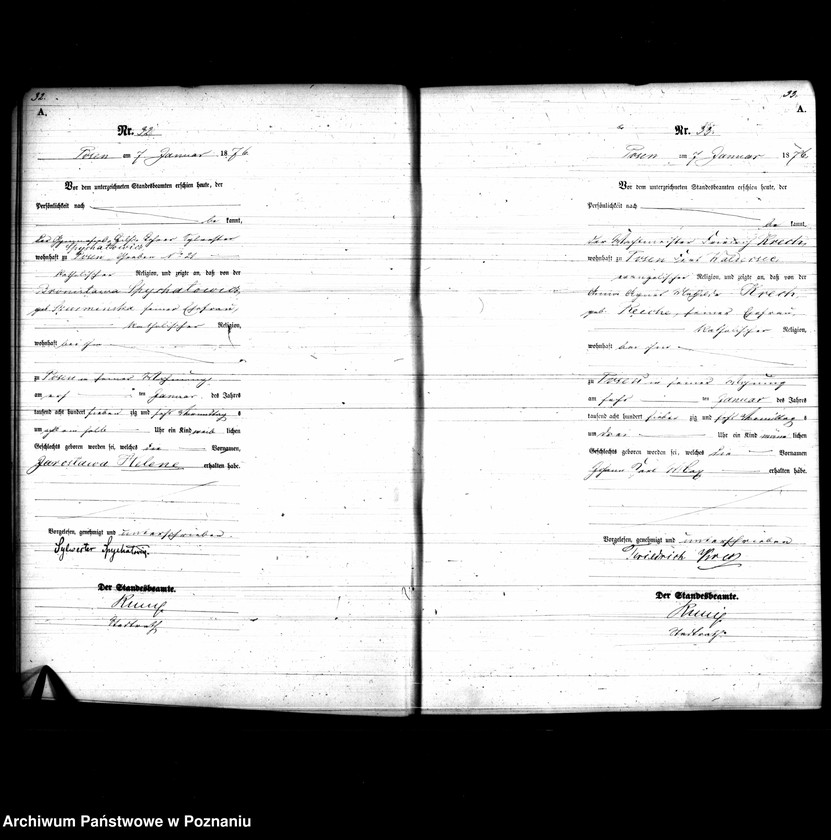 32.
A.
Nr. 32
Posen am 7 Januar 1876
Vor dem unterzeichneten Standesbeamten erschien heute, der
Persönlichkeit nach
be kannt,
Sylvester
Spychalowicz
wohnhaft zu Posen Graben No 21
katholischer Religion, und zeigte an, daß von der
Bronislawa Spychalowicz,
geb. seiner Ehefrau,
katholischer Religion,
wohnhaft bei ihm
zu Posen in seiner Wohnung
am Januar des Jahres
tausend acht hundert sieben zig und sechs Vormittags
um acht ein halb Uhr ein Kind weib lichen
Geschlechts geboren worden sei, welches die Vornamen,
Helene erhalten habe.
Vorgelesen, genehmigt und unterschrieben.
Sylwester Spychalowicz
Der Standesbeamte.
Stadtrath
33.
A.
Nr. 33.
Posen am 7 Januar 1876
Vor dem unterzeichneten Standesbeamten erschien heute, der
Persönlichkeit nach
be kannt,
der Wachtmeister Friedrich Krech
wohnhaft zu Posen
evangelischer Religion, und zeigte an, daß von der
Anna Agnes Mathilde Krech
geb. seiner Ehefrau,
katholischer Religion,
wohnhaft bei ihm
zu Posen in seiner Wohnung
am Januar des Jahres
tausend acht hundert sieben zig und sechs Vormittags
um drei Uhr ein Kind männ lichen
Geschlechts geboren worden sei, welches die Vornamen
Johann erhalten habe.
Vorgelesen, genehmigt und unterschrieben
Friedrich Krech
Der Standesbeamte.
Stadtrath
Archiwum Państwowe w Poznaniu